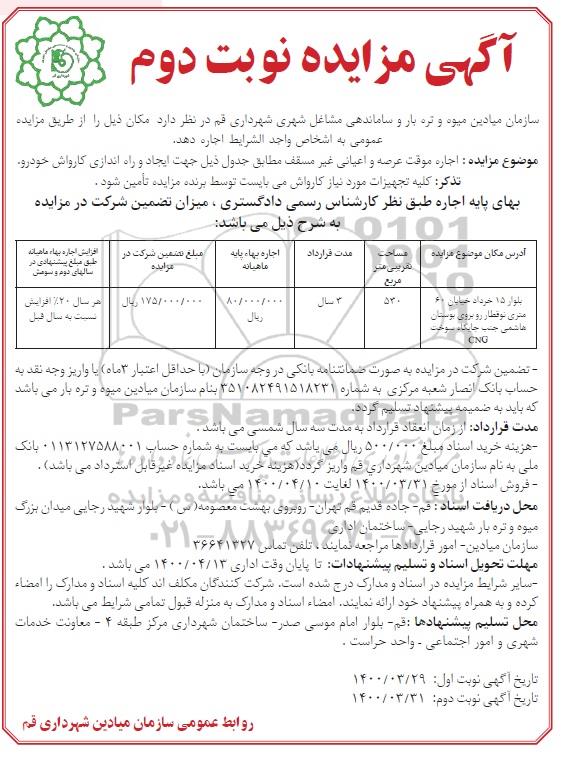 آگهی مزایده نوبت دوم
سازمان میادین میوه و تره بار و ساماندهی مشاغل شهری شهرداری قم در نظر دارد مکان ذیل را از طریق مزایده
عمومی به اشخاص واجد الشرایط اجاره دهد.
موضوع مزایده : اجاره موقت عرصه و اعیانی غیر مسقف مطابق جدول ذیل جهت ایجاد و راه اندازی کارواش خودرو.
تذکر: کلیه تجهیزات مورد نیاز کارواش می بایست توسط برنده مزایده تأمین شود .
بهای پایه اجاره طبق نظر کارشناس رسمی دادگستری ، میزان تضمین شرکت در مزایده
به شرح ذیل می باشد:
آدرس مکان موضوع مزایده | مساحت تقریبی متر مربع | مدت قرارداد | اجاره بهاء پایه ماهیانه | مبلغ تضمین شرکت در مزایده | افزایش اجاره بهاء ماهیانه طبق مبلغ پیشنهادی در سالهای دوم و سومش
بلوار ۱۵ خرداد خیابان ۶۰ متری نوقطار روبروی بوستان هاشمی جنب جایگاه سوخت CNG | ۵۳۰ | ۳ سال | ۸۰/۰۰۰/۰۰۰ ریال | ۱۷۵/۰۰۰/۰۰۰ ریال | هر سال ۲۰٪ افزایش نسبت به سال قبل
- تضمین شرکت در مزایده به صورت ضمانتنامه بانکی در وجه سازمان (با حداقل اعتبار ۳ماه) یا واریز وجه نقد به
حساب بانک انصار شعبه مرکزی به شماره ۳۵۱۰۸۲۴۹۱۵۱۸۲۳۱ بنام سازمان میادین میوه و تره بار می باشد
که باید به ضمیمه پیشنهاد تسلیم گردد.
مدت قرارداد: از زمان انعقاد قرارداد به مدت سه سال شمسی می باشد .
-هزینه خرید اسناد مبلغ ۵۰۰/۰۰۰ ریال می باشد که می بایست به شماره حساب ۰۱۱۳۱۲۷۵۸۸۰۰۱ بانک
ملی به نام سازمان میادین شهرداری قم واریز گردد(هزینه خرید اسناد مزایده غیرقابل استرداد می باشد) .
- فروش اسناد از مورخ ۱۴۰۰/۰۳/۳۱ لغایت ۱۴۰۰/۰۴/۱۰ می باشد.
محل دریافت اسناد : قم- جاده قدیم قم تهران- روبروی بهشت معصومه(س ) - بلوار شهید رجایی میدان بزرگ
میوه و تره بار شهید رجایی- ساختمان اداری
سازمان میادین- امور قراردادها مراجعه نمایند ، تلفن تماس ۳۶۶۴۱۳۲۷
مهلت تحویل اسناد و تسلیم پیشنهادات: تا پایان وقت اداری ۱۴۰۰/۰۴/۱۳ می باشد .
-سایر شرایط مزایده در اسناد و مدارک درج شده است. شرکت کنندگان مکلف اند کلیه اسناد و مدارک را امضاء
کرده و به همراه پیشنهاد خود ارائه نمایند. امضاء اسناد و مدارک به منزله قبول تمامی شرایط می باشد.
محل تسلیم پیشنهادها :قم- بلوار امام موسی صدر- ساختمان شهرداری مرکز طبقه ۴ - معاونت خدمات
شهری و امور اجتماعی - واحد حراست .
تاریخ آگهی نوبت اول: ۱۴۰۰/۰۳/۲۹
تاریخ آگهی نوبت دوم: ۱۴۰۰/۰۳/۳۱
روابط عمومی سازمان میادین شهرداری قم
ParsNamadData